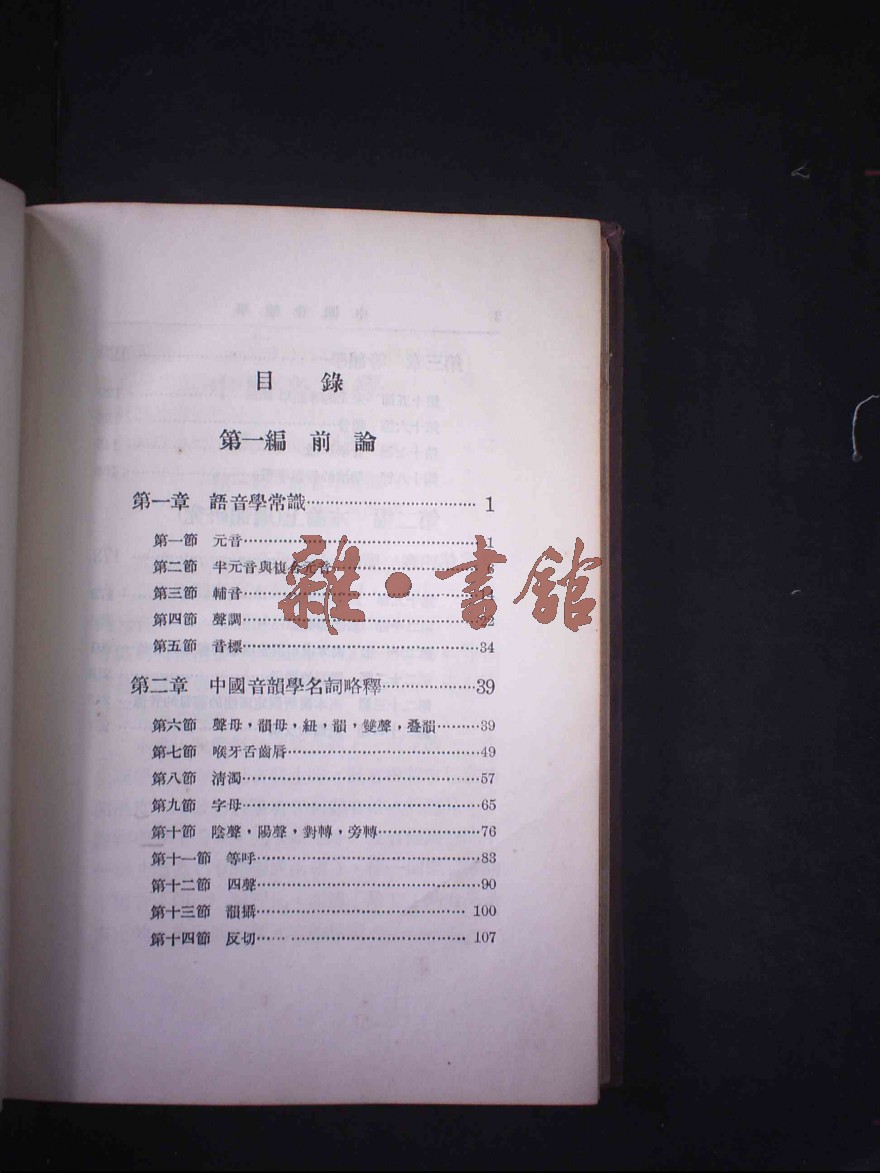 目 錄
第一編 前 論
第一章 語音學常識……………………… 1
第一節 元音………………………………1
第二節 半元音與複合元音………………6
第三節 輔音………………………………12
第四節 聲調………………………………22
第五節 音標………………………………34
第二章 中國音韻學名詞略釋……………39
第六節 聲母,韻母,紐,韻,雙聲,叠韻………39
第七節 喉牙舌齒脣………………………49
第八節 淸濁………………………………57
第九節 字母………………………………65
第十節 陰聲,陽聲,對轉,旁轉……………76
第十一節 等呼……………………………83
第十二節 四聲……………………………90
第十三節 韻攝…………………………… 100
第十四節 反切…………………………… 107
雜·書館